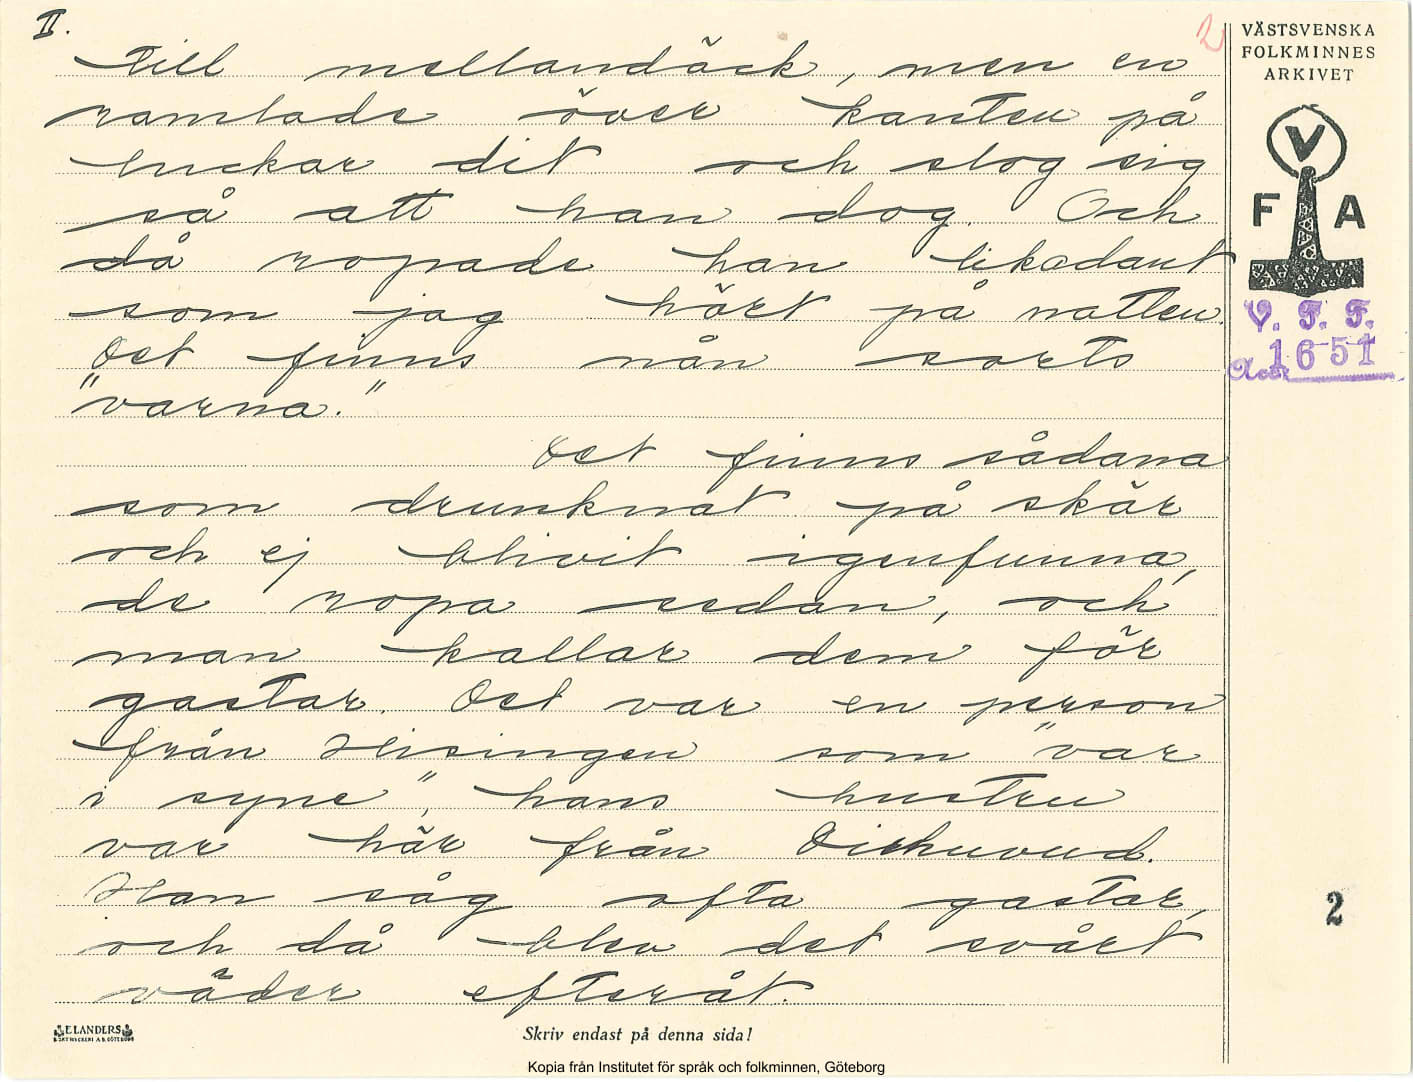 II.
2
till mellandäck, men en
ramlade över kanten på
luckar dit och slog sig
så att han dog. Och
då ropade han likadant
som jag hört på natten.
Det finns nån sorts
"varna."
Det finns sådana
som drunknat på skär
och ej blivit igenfunna,
de ropa sedan, och
man kallar dem för
gastar. Det var en person
från Hisingen som "var
i syne", hans hustru
var här från
Han såg ofta gastar,
och då blev det svårt
väder efteråt.
VÄSTSVENSKA
FOLKMINNES
ARKIVET
V
F A
V. F. F.
Acc. 1651
2
ELANDERS
BOKTRYCKERI A.B. GÖTEBORG
Skriv endast på denna sida!
Kopia från Institutet för språk och folkminnen, Göteborg